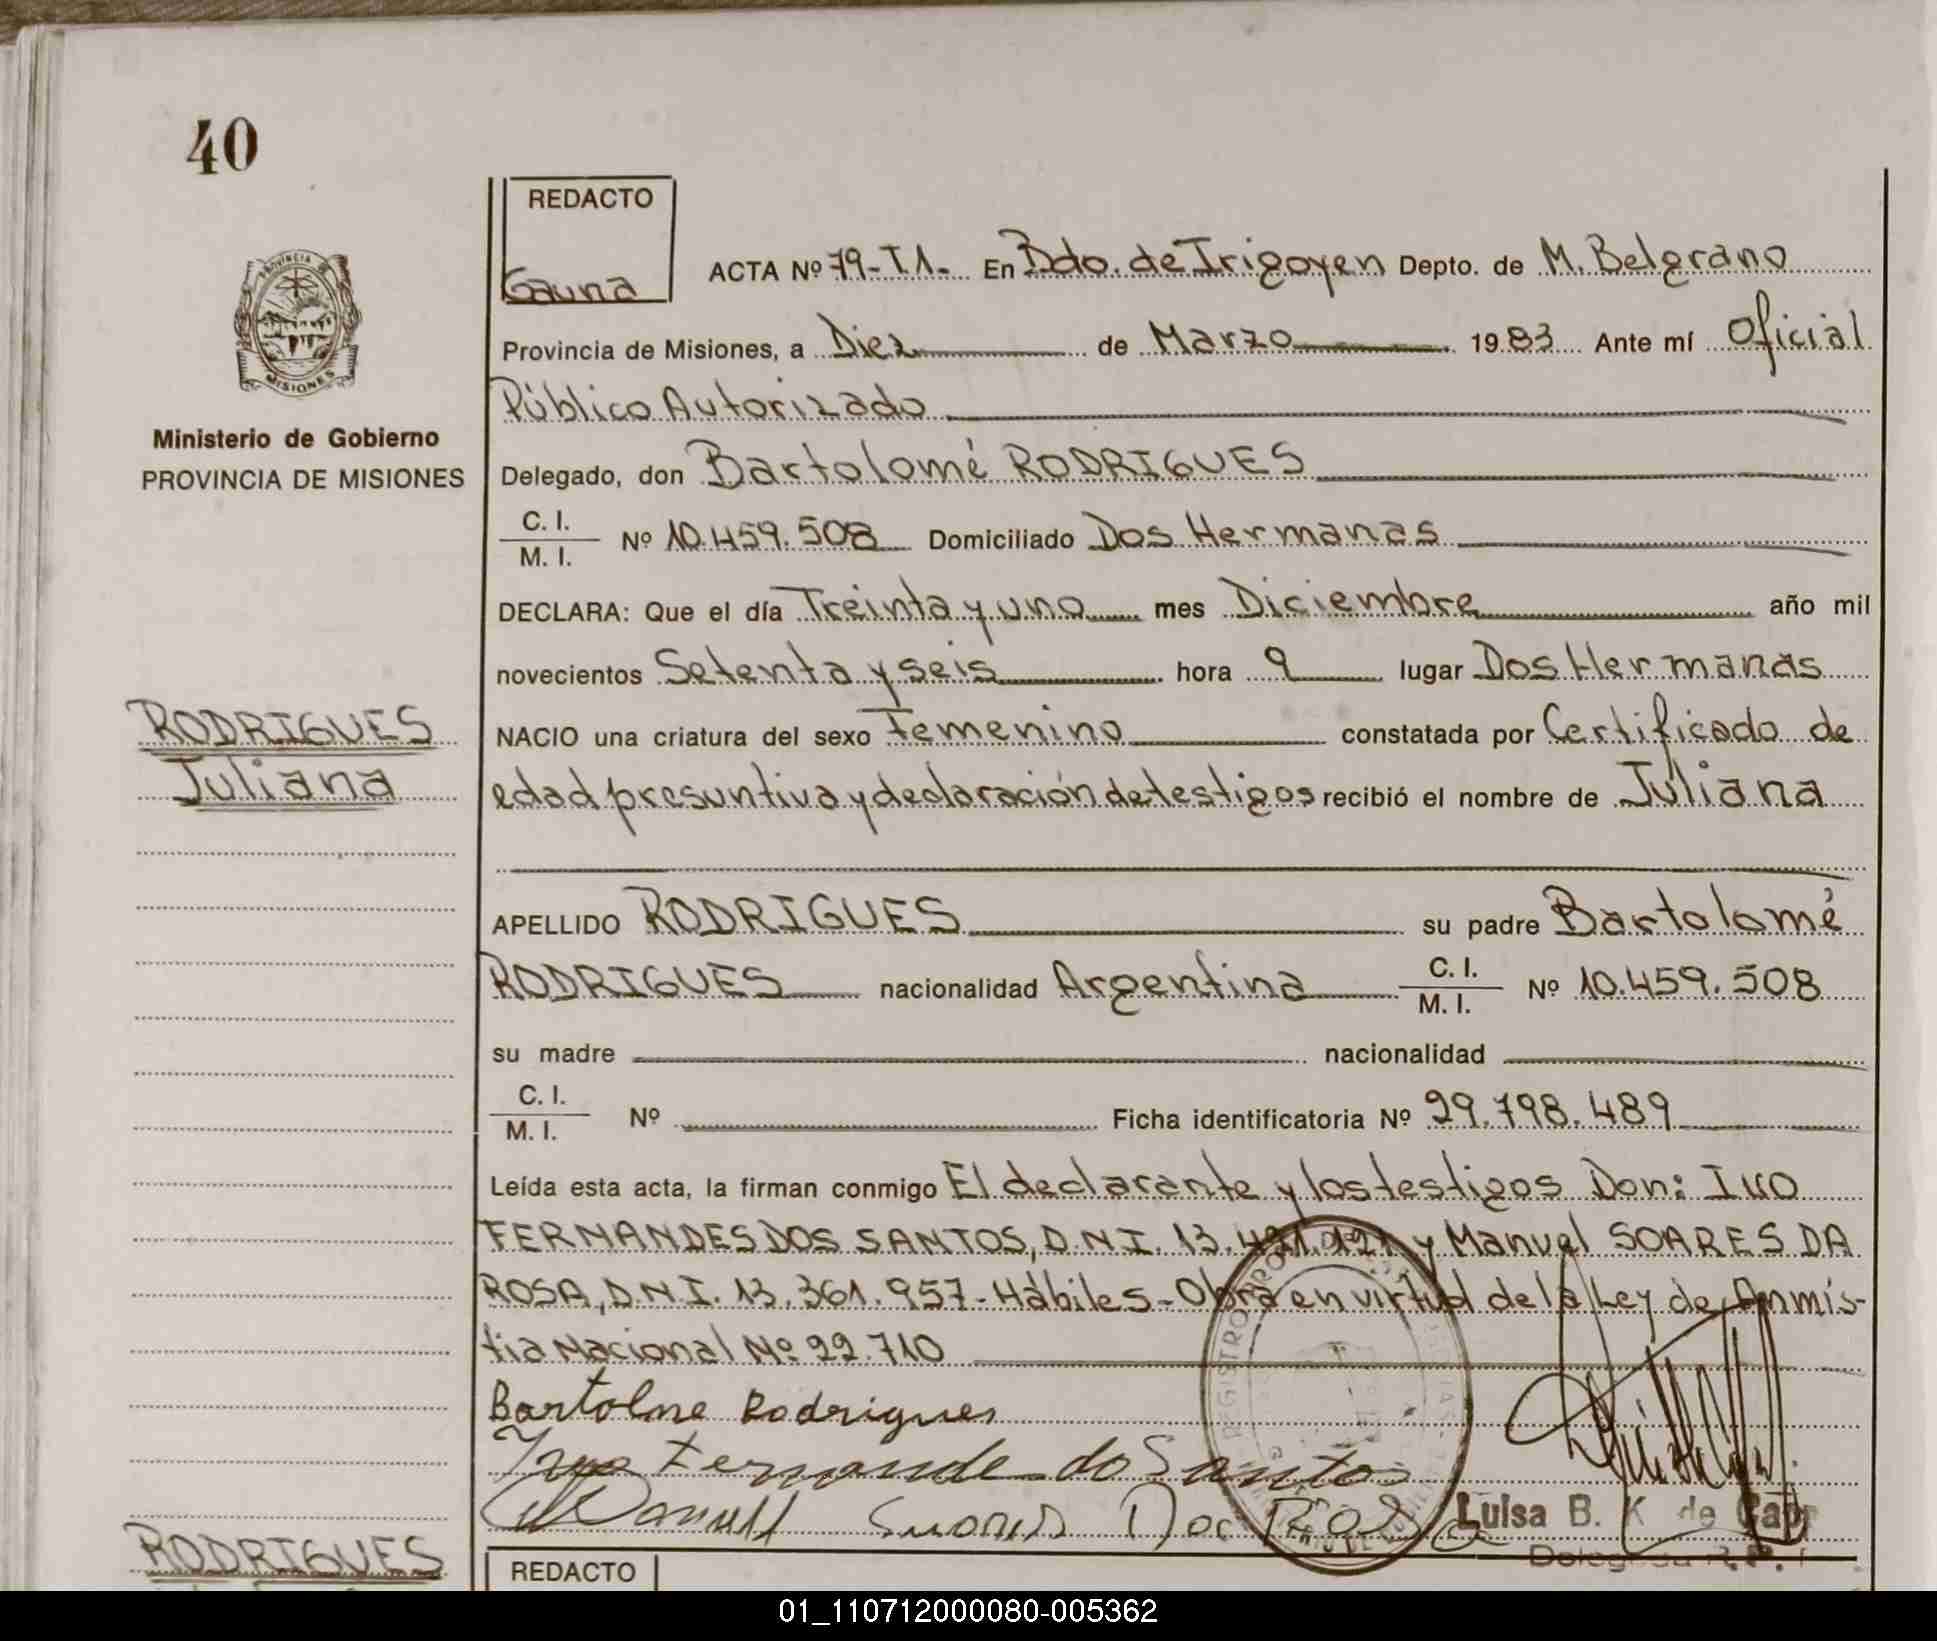 40
REDACTO
Gauna
ACTA Nº 79-T1- En Bdo. de Irigoyen Depto. de M. Belgrano
Provincia de Misiones, a Diez de Marzo 1983 Ante mí Oficial
Público Autorizado
Delegado, don Bartolomé RODRIGUES
C. I.
M. I. Nº 10.459.508 Domiciliado Dos Hermanas
DECLARA: Que el día Treinta y uno mes Diciembre año mil
novecientos Setenta y seis hora 9 lugar Dos Hermanas
NACIO una criatura del sexo Femenino constatada por Certificado de
edad presuntiva y declaración de testigos recibió el nombre de Juliana
APELLIDO RODRIGUES su padre Bartolomé
RODRIGUES nacionalidad Argentina C. I. M. I. Nº 10.459.508
su madre nacionalidad
C. I.
M. I. Nº Ficha identificatoria Nº 29.798.489
Leída esta acta, la firman conmigo El declarante y los testigos Don: IVO
FERNANDES DOS SANTOS, D.N.I. 13. y Manuel SOARES DA
ROSA, D.N.I. 13.361.957- Hábiles- Obra en virtud de la Ley de Anmis-
tia Nacional Nº 22.710
Bartolme Rodrigues
Fernande do Santos
Luisa B. K de
REDACTO
PROVINCIA DE
MISIONES
Ministerio de Gobierno
PROVINCIA DE MISIONES
RODRIGUES
Juliana
RODRIGUES
REGISTRO
01_110712000080-005362